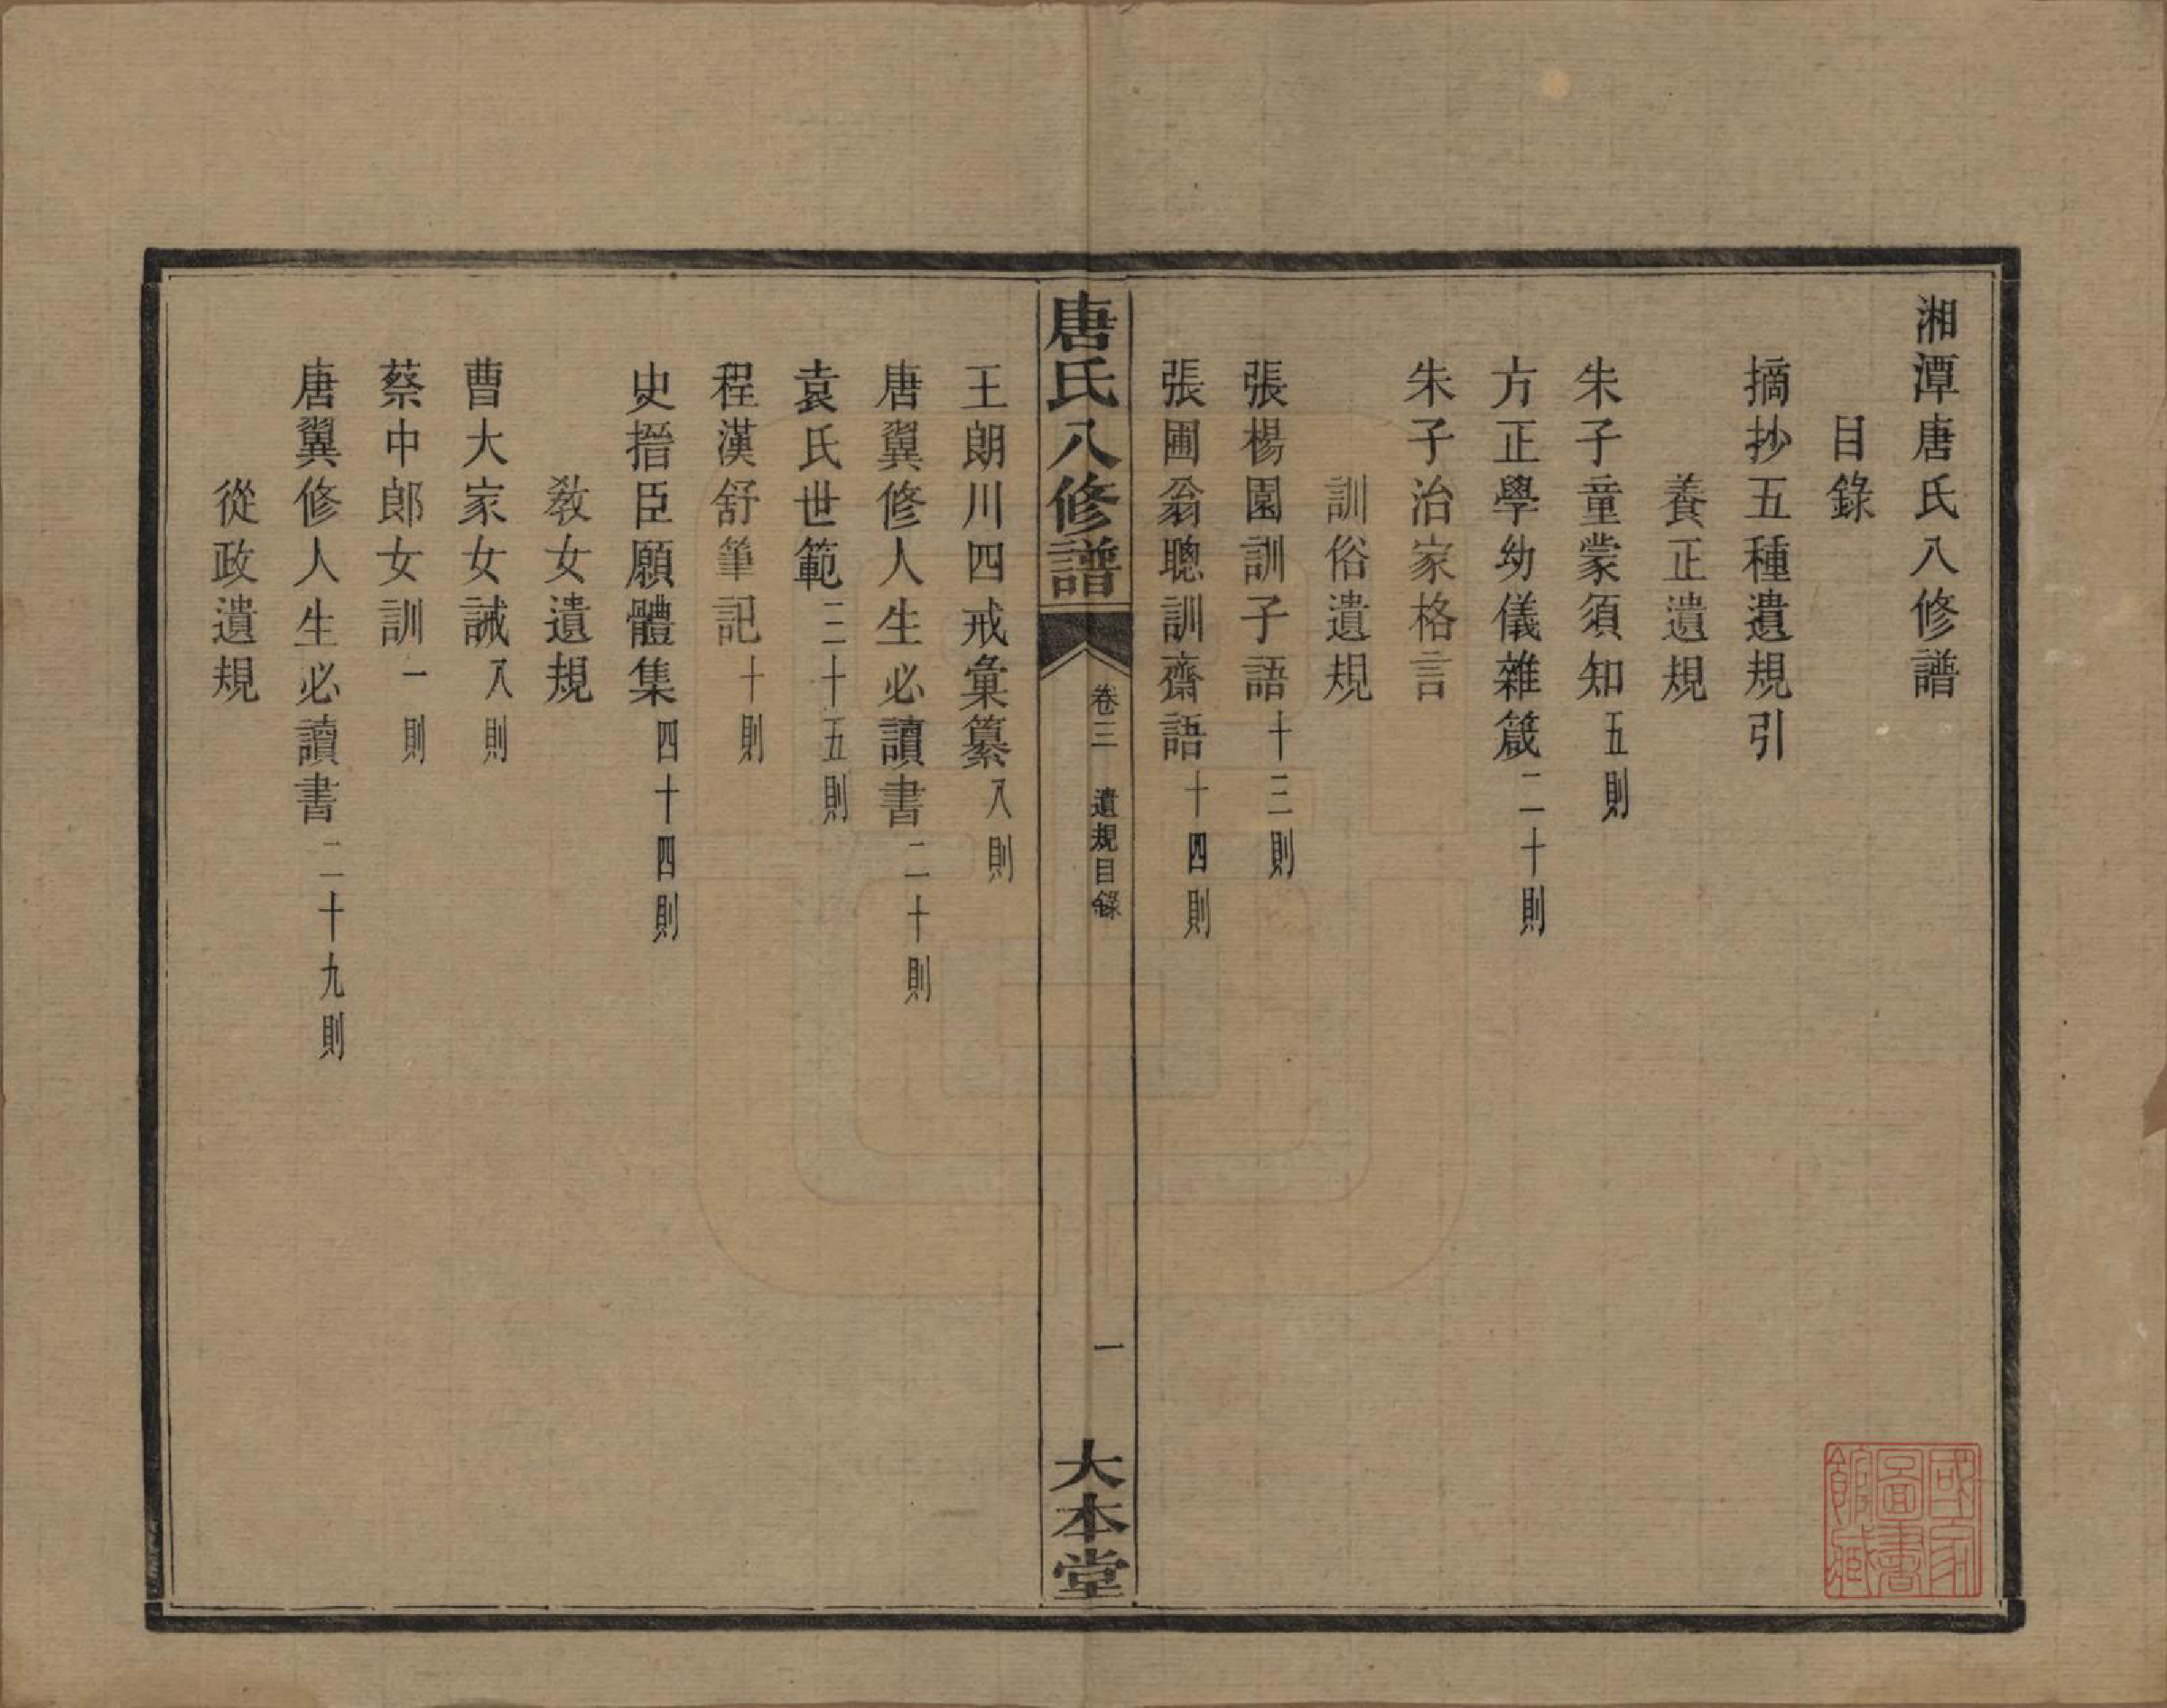 湘潭唐氏八修譜
目錄
摘抄五種遺規引
養正遺規
朱子童蒙須知五則
方正學幼儀雜箴二十則
朱子治家格言
訓俗遺規
張楊園訓子語十三則
張圃翁聰訓齋語十四則
唐氏八修譜
卷三 遺規目錄
一
大本堂
王朗川四戒彙纂八則
唐翼修人生必讀書二十則
袁氏世範三十五則
程漢舒筆記十則
史搢臣願體集四十四則
教女遺規
曹大家女誡八則
蔡中郎女訓一則
唐翼修人生必讀書二十九則
從政遺規
國家圖書館藏